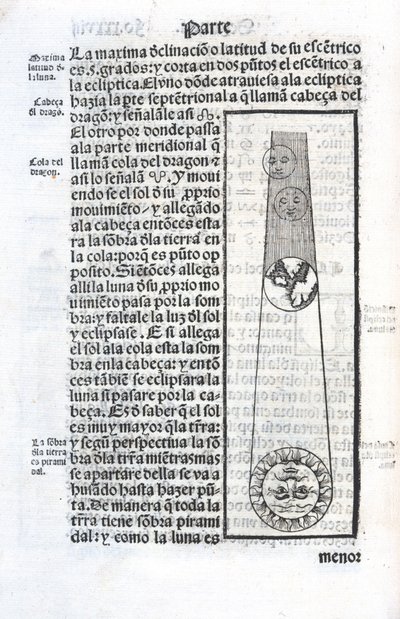 Parte
La maxima declinaciō o latitud de su escētrico
es.5.grados: y corta en dos pūtos el escētrico a
la ecliptica. El vno dōde atrauiesa ala ecliptica
hazia la pte septētrional a q̄ llamā cabeça del
dragō: y señalāle asi ☊.
El otro por donde passa
ala parte meridional q̄
llamā cola del dragon ⁊
asi lo señalā ☋. Y moui
endo se el sol ō su ꝓprio
mouimiēto ⁊ allegādo
ala cabeça entōces esta
ra la sōbra ōla tierra en
la cola: porq̄ es pūto op
posito. Si ētōces allega
alli la luna ō su ꝓprio mo
uimiēto pasa por la som
bra: y faltale la luz ōl sol
y eclipsase. E si allega
el sol ala cola esta la som
bra en la cabeça: y entō
ces tābiē se eclipsara la
luna si pasare por la ca-
beça. Es ō saber q̄ el sol
es muy mayor q̄ la tr̄ra:
y segū perspectiua la sō
bra ōla tr̄ra miētras mas
se apartare della se va a
husādo hasta hazer pū
ta. De manera q̄ toda la
trr̄a tiene sōbra pirami
dal: y como la luna es
menor
Maxima
latitud ō
la luna.
Cabeça
ōl dragō.
Cola del
dragon.
La sōbra
ōla tierra
es pirami
dal.